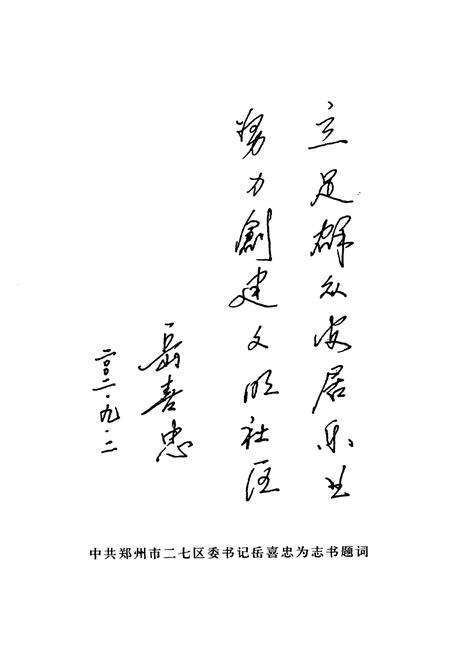 立足群众安居乐业
努力創建文明社区
岳喜忠
二〇〇二·九·二
中共郑州市二七区委书记岳喜忠为志书题词